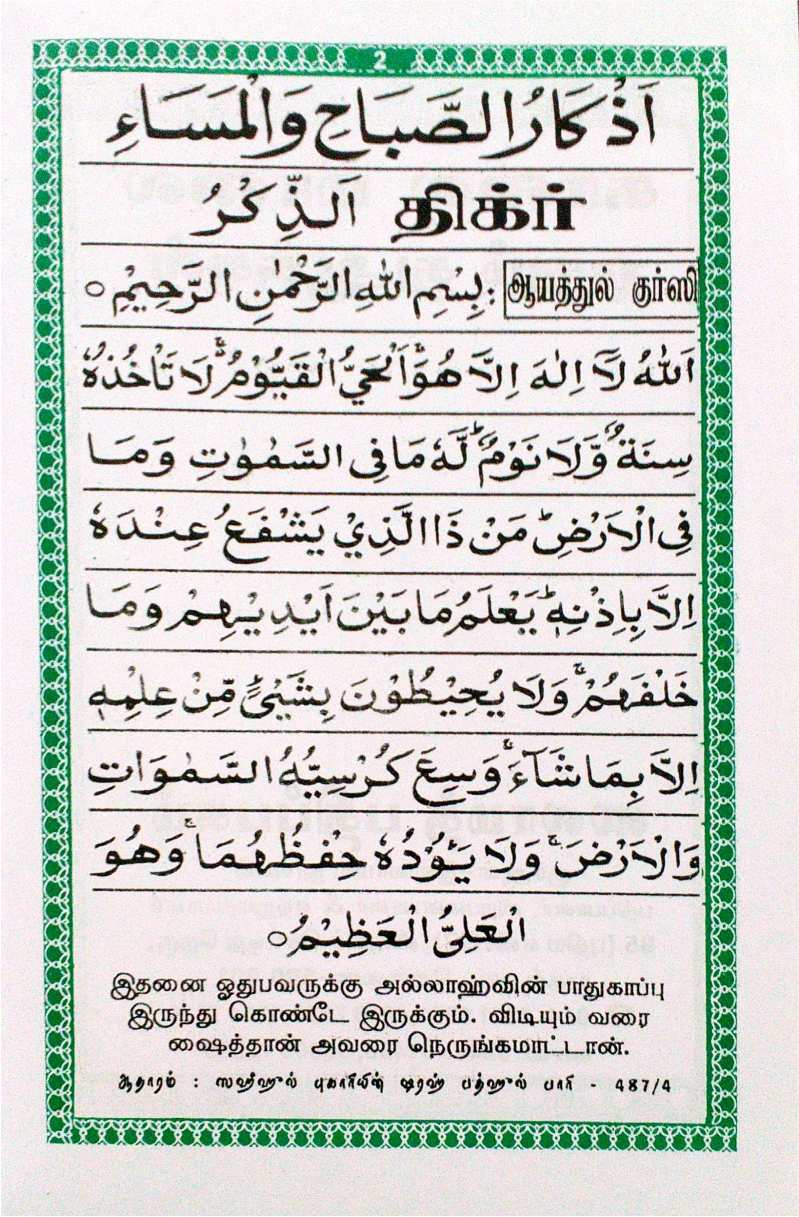 2
اَذْكَارُ الصَّبَاحِ وَالْمَسَاءِ
اَلذِّكْرُ திக்ர்
ஆயத்துல் குர்ஸி : بِسْمِ اللهِ الرَّحْمٰنِ الرَّحِيْمِ ○
اَللهُ لَآ اِلٰهَ اِلَّا هُوَۚ اَلْحَيُّ الْقَيُّوْمُ ۚ لَا تَاْخُذُهٗ
سِنَةٌ وَّلَا نَوْمٌ ؕ لَهٗ مَا فِى السَّمٰوٰتِ وَمَا
فِى الْاَرْضِ ؕ مَنْ ذَا الَّذِيْ يَشْفَعُ عِنْدَهٗ
اِلَّا بِاِذْنِهٖ ؕ يَعْلَمُ مَا بَيْنَ اَيْدِيْهِمْ وَمَا
خَلْفَهُمْ ۚ وَلَا يُحِيْطُوْنَ بِشَيْئٍ مِّنْ عِلْمِهٖ
اِلَّا بِمَا شَآءَ ۚ وَسِعَ كُرْسِيُّهُ السَّمٰوَاتِ
وَالْاَرْضَ ۚ وَلَا يَؤُدُهٗ حِفْظُهُمَا ۚ وَهُوَ
الْعَلِيُّ الْعَظِيْمُ ○
இதனை ஓதுபவருக்கு அல்லாஹ்வின் பாதுகாப்பு
இருந்து கொண்டே இருக்கும். விடியும் வரை
ஷைத்தான் அவரை நெருங்கமாட்டான்.
ஆதாரம் : ஸஹீஹுல் புகாரியின் ஷரஹ் பத்ஹுல் பாரி - 487/4